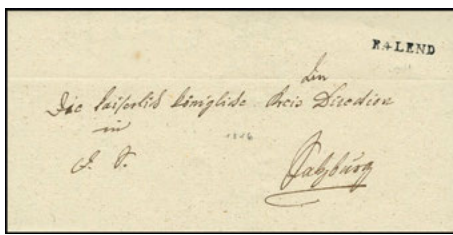 R+LEND
An
Die kaiserlich königliche Kreis Direction
in
1816
Salzburg